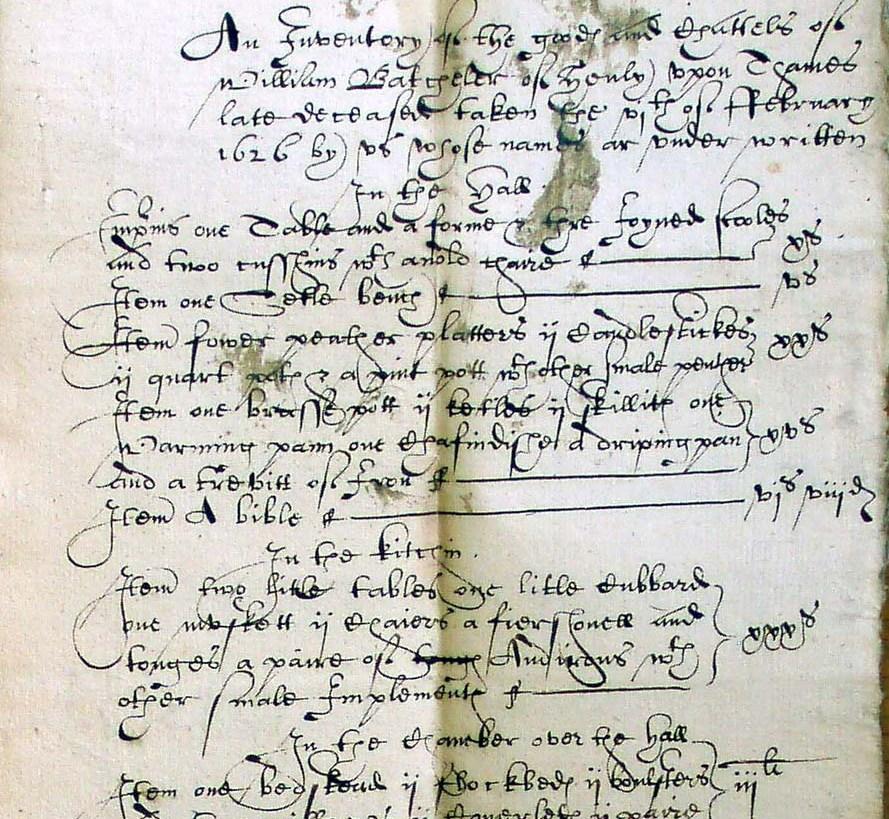 An Inventory of the goods and Chattels of
William Batcheler of Henly vpon Thames
late deceased taken the vith of ffebruary
1626 by vs whose names ar vnder written
In the Hall
Inpris one Table and a forme & thre Joyned stooles
and two cusshins wth an old chaire xs
Item one Setle bench vs
Item fower peather platters ii Candlestickes
ii quart pots & a pint pott wth other smale peuter xxs
Item one brasse pott ii ketles ii skillits one
Warming pann one Chafindishe a driping pan xvs
and a trevitt of Iron
Item A bible vjs viijd
In the kitchin
Item two litle tables one litle Cubbard
one muskett ii Chaiers a fiershovell and
tonges a paire of Andirons wth xxxs
other smale Implements
In the Chamber over the Hall
Item one bedstead ii fflockbeds ii boulsters iiili
ii Coverleds ii paire